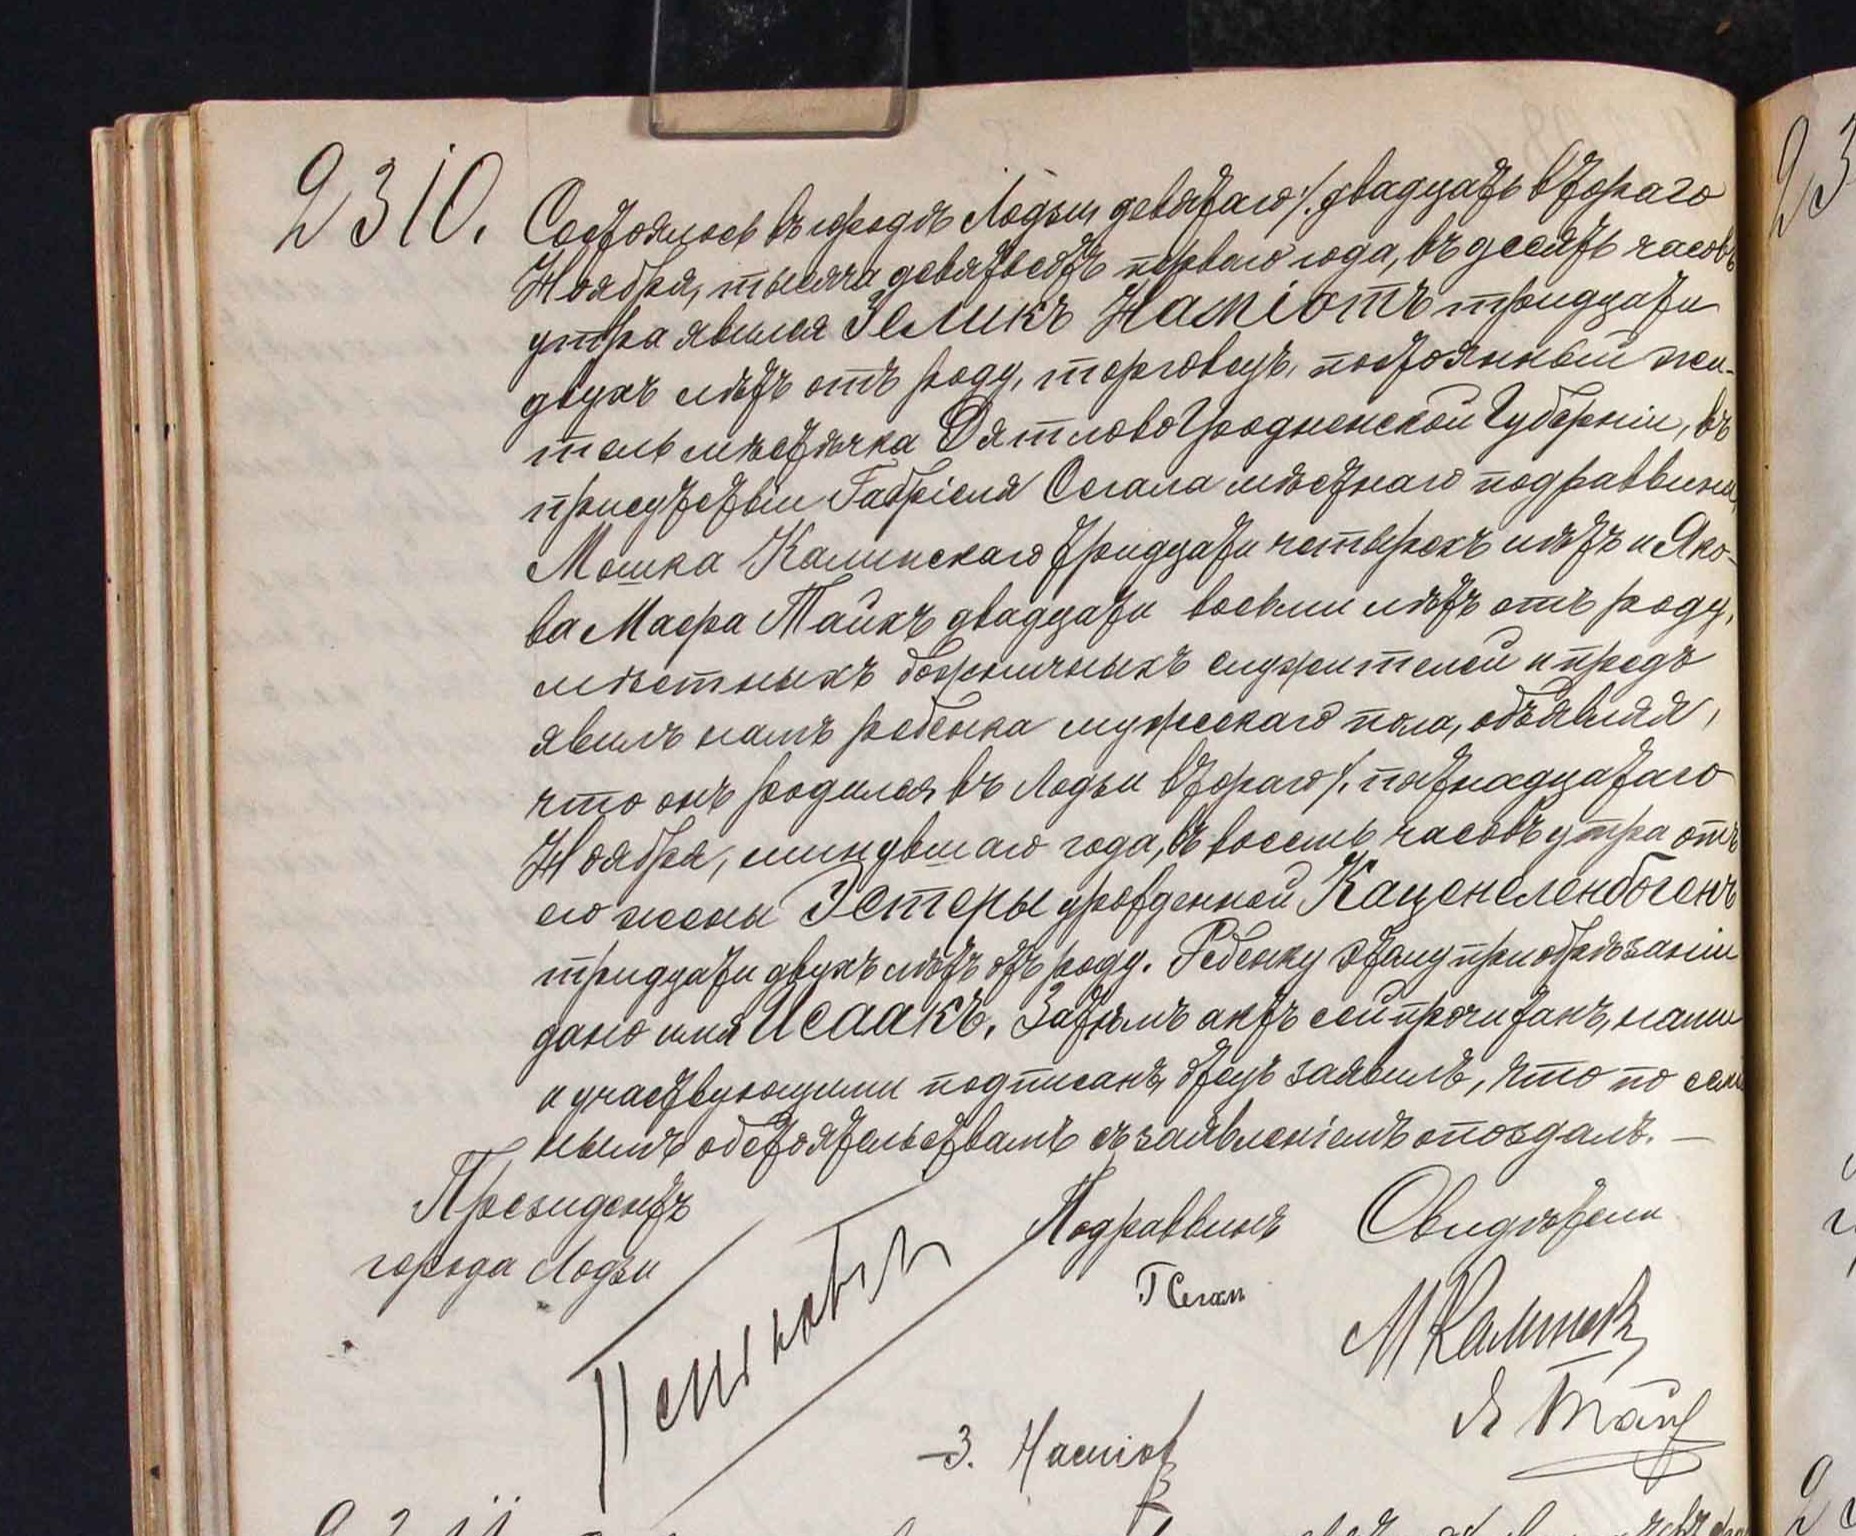 2310.
Состоялось въ городѣ Лодзи девятаго/двадцать втораго
Ноября, тысяча девятьсотъ перваго года, въ десять часовъ
утра явился Зеликъ Наміотъ тридцати
двухъ лѣтъ отъ роду, торговецъ, постоянный жи-
тель мѣстечка Дятлово Гродненской Губерніи, въ
присутствіи Габріеля Сегала мѣстнаго подраввина,
Мошка Калинскаго тридцати четырехъ лѣтъ и Яко-
ва Маера Тайхъ двадцати восьми лѣтъ отъ роду,
мѣстныхъ божничныхъ служителей и предъ
явилъ намъ ребенка мужескаго пола, объявляя,
что онъ родился въ Лодзи втораго/пятнадцатаго
Ноября, минувшаго года, въ восемь часовъ утра отъ
его жены Эстеры урожденной Каценеленбогенъ
тридцати двухъ лѣтъ отъ роду. Ребенку этому при обрѣзаніи
дано имя Исаакъ. Затѣмъ актъ сей прочитанъ, нами
и участвующими подписанъ, отецъ заявилъ, что по сем
нымъ обстоятельствамъ съ заявленіемъ опоздалъ. —
Президентъ
города Лодзи
Подраввинъ
Свидѣтели
Г Сегал
М Калинск
Я Тайх
З. Наміот